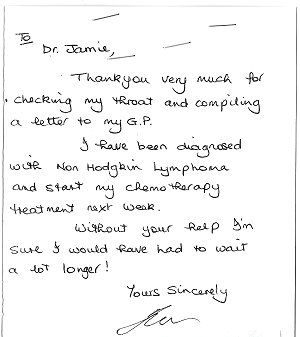 To
Dr. Jamie,
Thankyou very much for
checking my throat and compiling
a letter to my G.P.
I have been diagnosed
with Non Hodgkin Lymphoma
and start my chemotherapy
treatment next week.
Without your help I'm
sure I would have had to wait
a lot longer!
Yours Sincerely